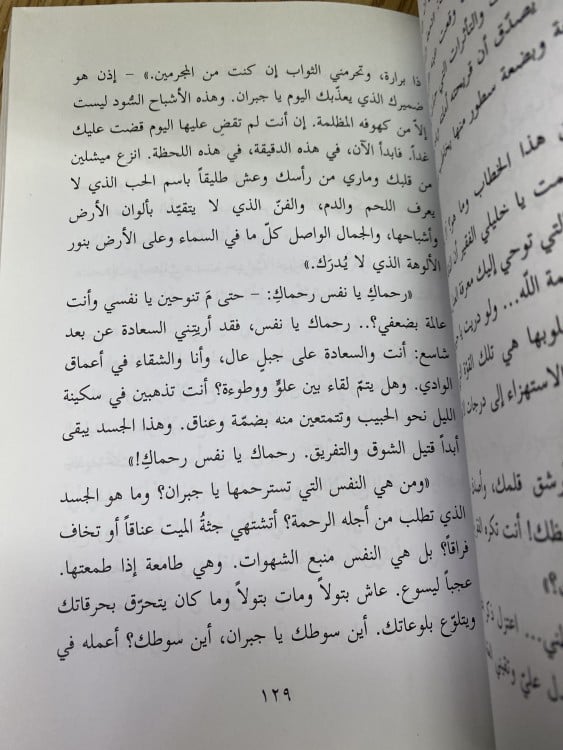 ذا برارة، وتحرمني الثواب إن كنت من المجرمين.» - إذن هو
ضميرك الذي يعذّبك اليوم يا جبران. وهذه الأشباح السُود ليست
إلاّ من كهوفه المظلمة. إن أنت لم تقضِ عليها اليوم قضت عليك
غداً. فابدأ الآن، في هذه الدقيقة، في هذه اللحظة. انزع ميشلين
من قلبك وماري من رأسك وعش طليقاً باسم الحب الذي لا
يعرف اللحم والدم، والفنّ الذي لا يتقيّد بألوان الأرض
وأشباحها، والجمال الواصل كلّ ما في السماء وعلى الأرض بنور
الألوهة الذي لا يُدرَك.»
«رحماكِ يا نفس رحماكِ: - حتى مَ تنوحين يا نفسي وأنت
عالمة بضعفي؟.. رحماك يا نفس، فقد أريتِني السعادة عن بعد
شاسع: أنت والسعادة على جبلٍ عال، وأنا والشقاء في أعماق
الوادي. وهل يتمّ لقاء بين علوٍّ ووطوءة؟ أنت تذهبين في سكينة
الليل نحو الحبيب وتتمتعين منه بضمّة وعناق. وهذا الجسد يبقى
أبداً قتيل الشوق والتفريق. رحماك يا نفس رحماكِ!»
«ومن هي النفس التي تسترحمها يا جبران؟ وما هو الجسد
الذي تطلب من أجله الرحمة؟ أتشتهي جثةُ الميت عناقاً أو تخاف
فراقاً؟ بل هي النفس منبع الشهوات. وهي طامعة إذا طمعتها.
عجباً ليسوع. عاش بتولاً ومات بتولاً وما كان يتحرّق بحرقاتك
ويتلوّع بلوعاتك. أين سوطك يا جبران، أين سوطك؟ أعمله في
١٢٩
يصدّق أن قريحته
وبضعة سطور منها
هذا الخطاب وما
يا خليلي الفقير أن
التي توحي إليك معرفة
الله... ولو دريت يا
هي تلك القوّة
الاستهزاء إلى درجات
قلمك،
أنت تكره
اعتزل
عليّ